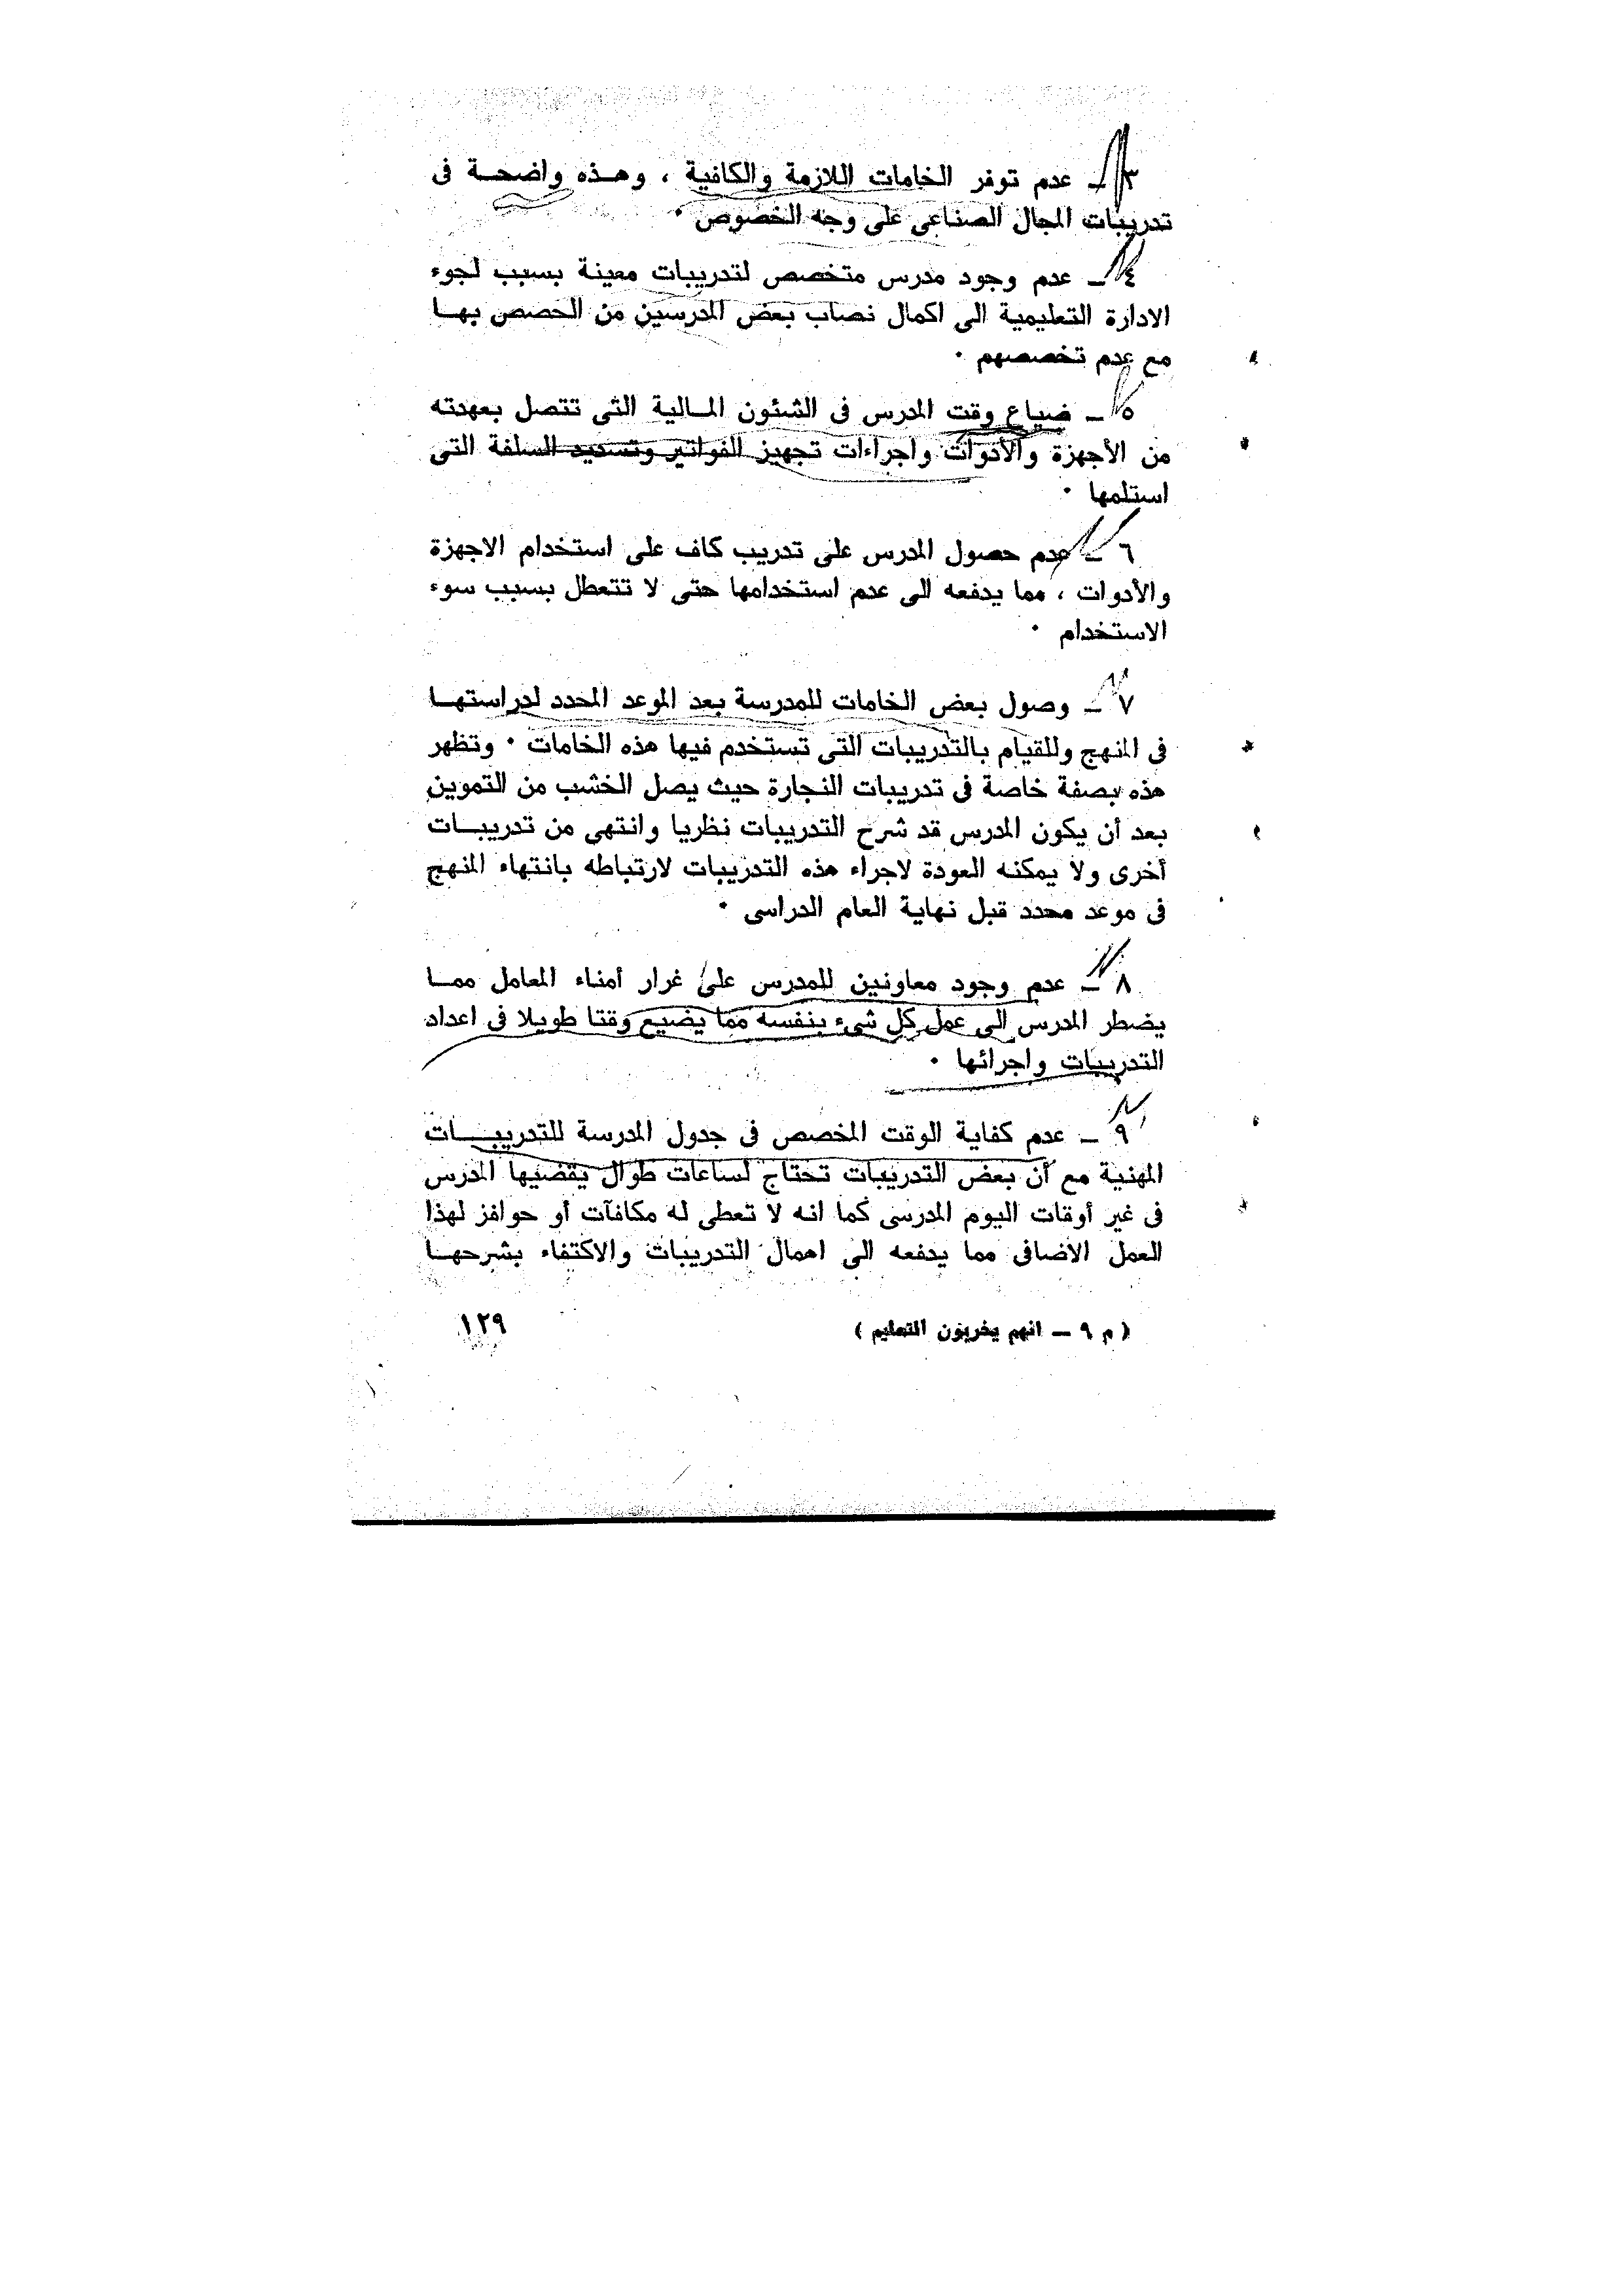 ٣ ــ عدم توفر الخامات اللازمة والكافية ، وهـذه واضحـة فى
تدريبات المجال الصناعى على وجه الخصوص ٠
٤ ــ عدم وجود مدرس متخصص لتدريبات معينة بسبب لجوء
الادارة التعليمية الى اكمال نصاب بعض المدرسين من الحصص بهـا
مع عدم تخصصهم ٠
٥ ــ ضياع وقت المدرس فى الشئون المـالية التى تتصل بعهدته
من الأجهزة والأدوات واجراءات تجهيز الفواتير وتسديد السلفة التى
استلمها ٠
٦ ــ عدم حصول المدرس على تدريب كاف على استخدام الاجهزة
والأدوات ، مما يدفعه الى عدم استخدامها حتى لا تتعطل بسبب سوء
الاستخدام ٠
٧ ــ وصول بعض الخامات للمدرسة بعد الموعد المحدد لدراستهـا
فى المنهج وللقيام بالتدريبات التى تستخدم فيها هذه الخامات ٠ وتظهر
هذه بصفة خاصة فى تدريبات النجارة حيث يصل الخشب من التموين
بعد أن يكون المدرس قد شرح التدريبات نظريا وانتهى من تدريبـات
أخرى ولا يمكنه العودة لاجراء هذه التدريبات لارتباطه بانتهاء المنهج
فى موعد محدد قبل نهاية العام الدراسى ٠
٨ ــ عدم وجود معاونين للمدرس على غرار أمناء المعامل ممـا
يضطر المدرس الى عمل كل شىء بنفسه مما يضيع وقتا طويلا فى اعداد
التدريبات واجرائها ٠
٩ ــ عدم كفاية الوقت المخصص فى جدول المدرسة للتدريبـــات
المهنية مع أن بعض التدريبات تحتاج لساعات طوال يقضيها المدرس
فى غير أوقات اليوم المدرسى كما انه لا تعطى له مكافآت أو حوافز لهذا
العمل الاضافى مما يدفعه الى اهمال التدريبات والاكتفاء بشرحهـا
( م ٩ ــ انهم يخربون التعليم )
١٢٩